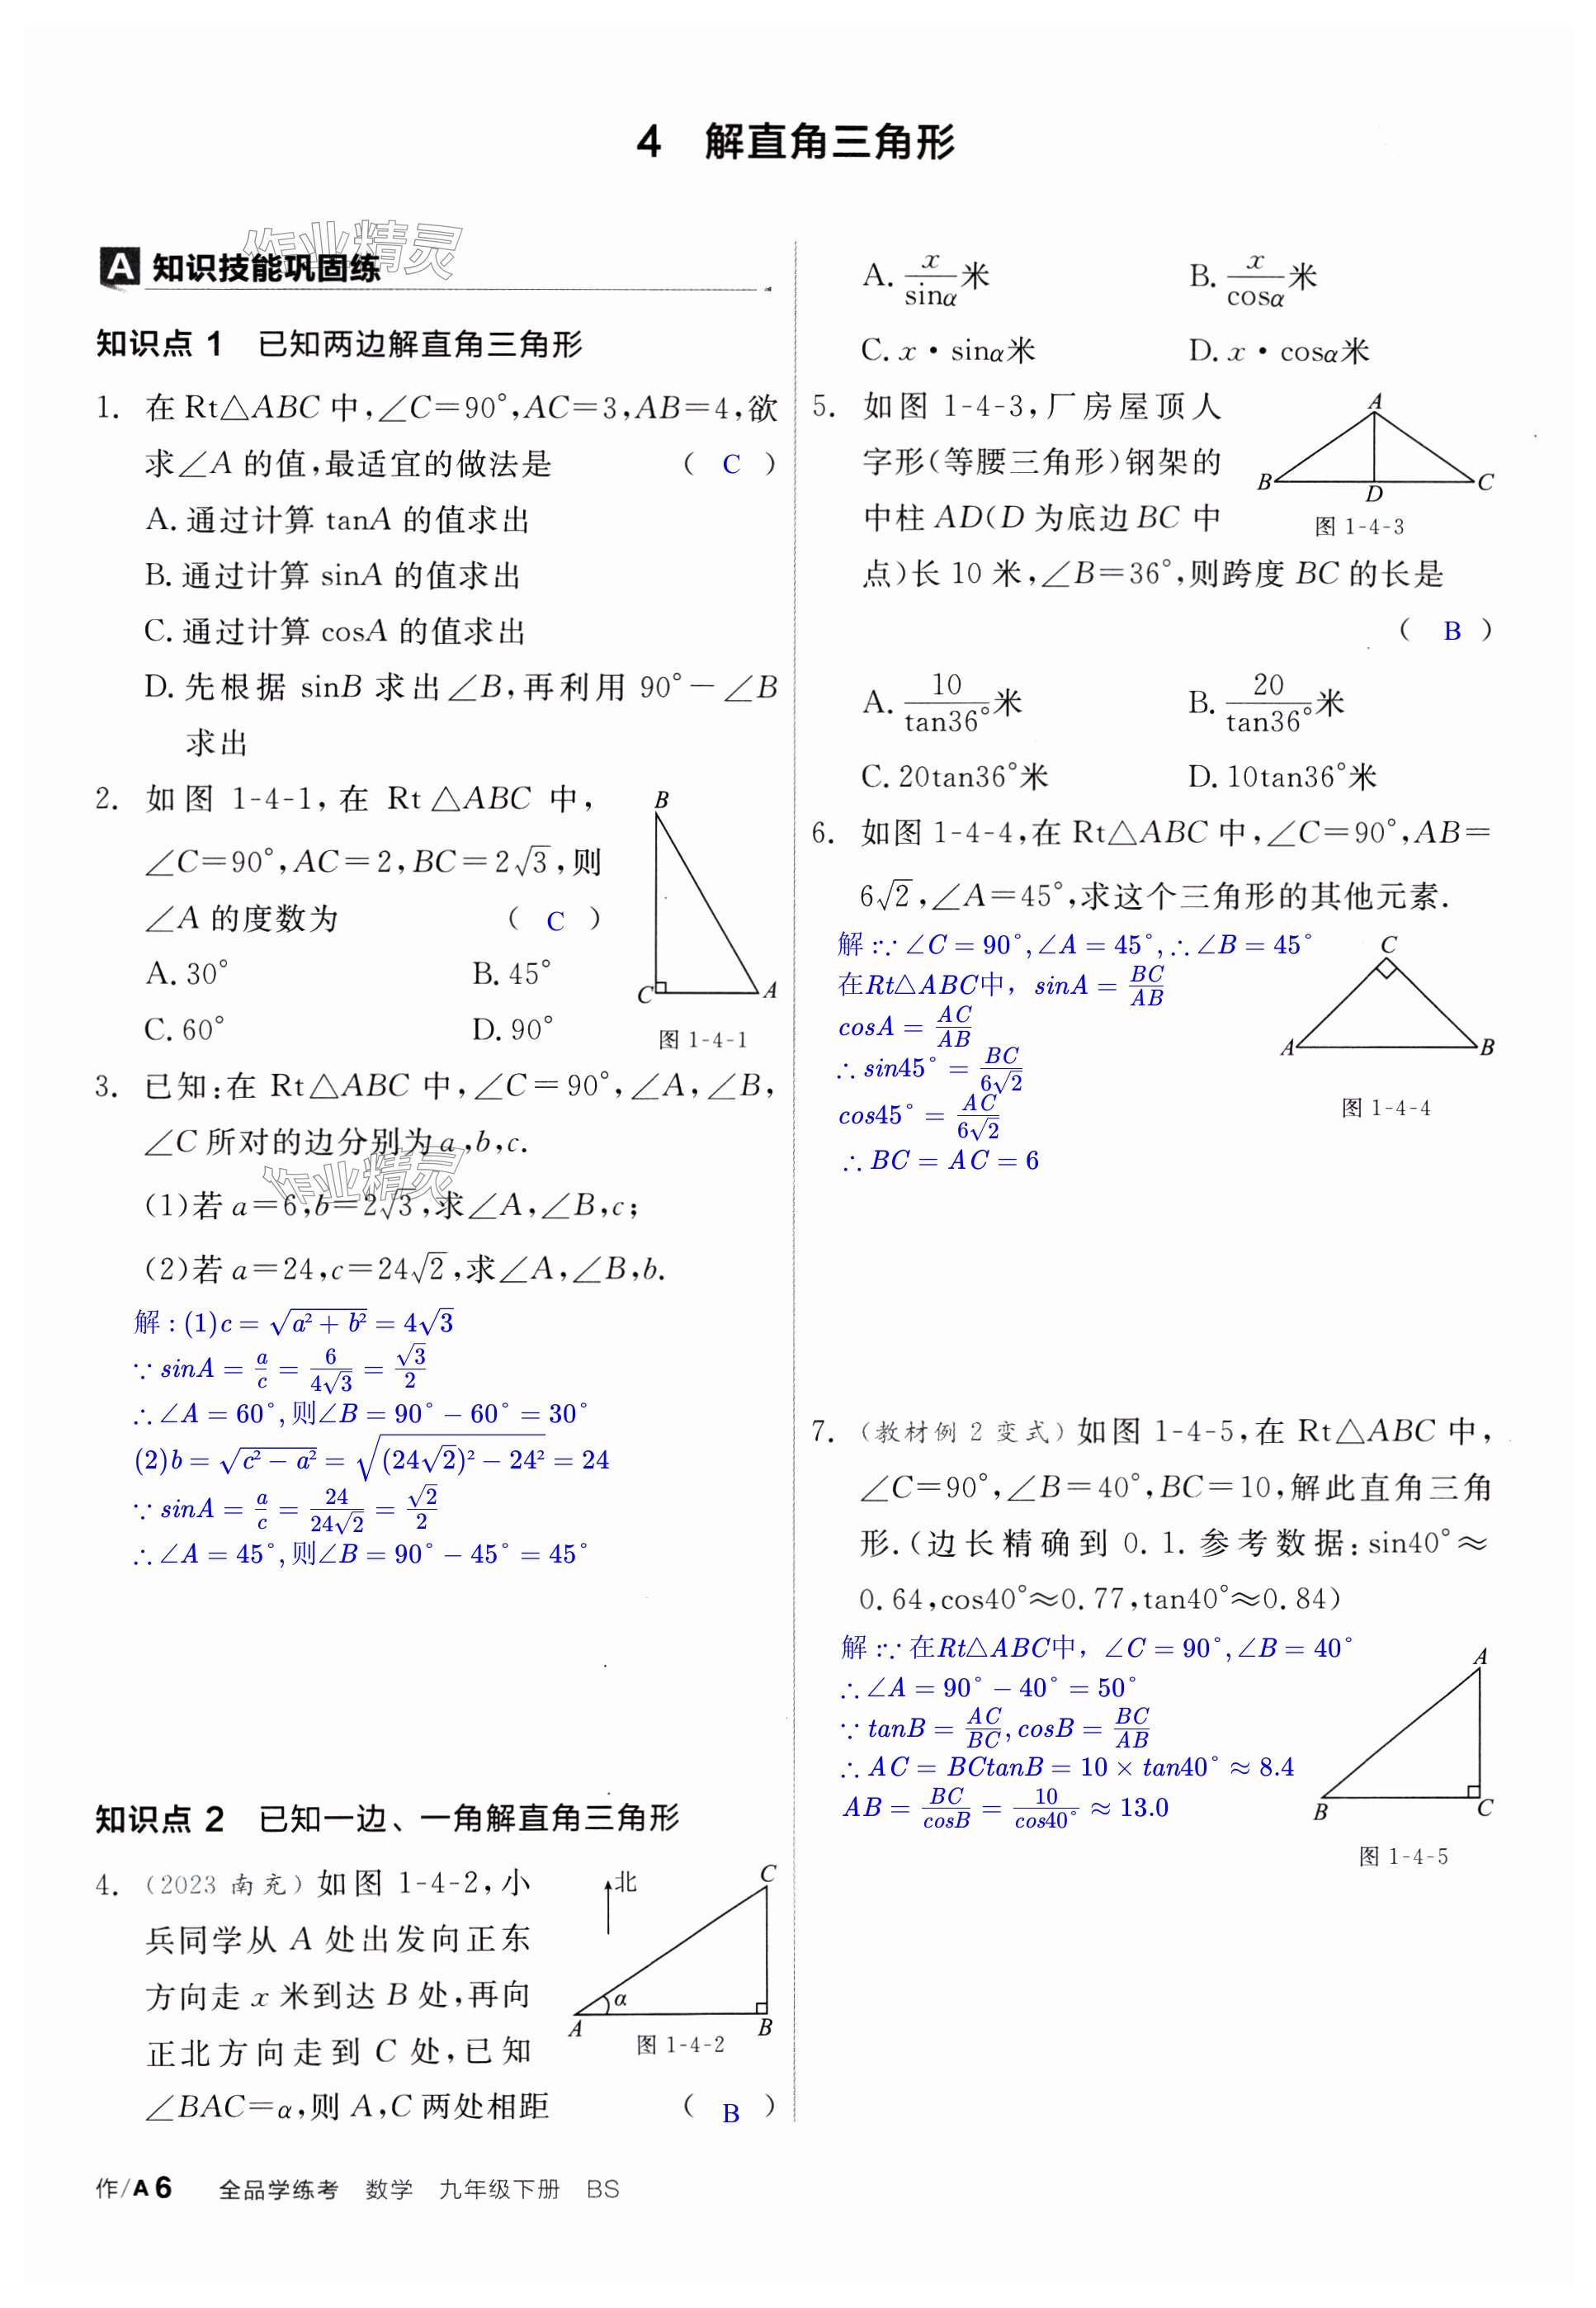 4 解直角三角形
作业精灵
A 知识技能巩固练
知识点 1 已知两边解直角三角形
1. 在 Rt△ABC 中,∠C=90°,AC=3,AB=4,欲
求∠A 的值,最适宜的做法是 ( C )
A. 通过计算 tanA 的值求出
B. 通过计算 sinA 的值求出
C. 通过计算 cosA 的值求出
D. 先根据 sinB 求出∠B,再利用 90°−∠B
求出
2. 如图 1-4-1,在 Rt△ABC 中,
∠C=90°,AC=2,BC=2√3,则
∠A 的度数为 ( C )
A. 30° B. 45°
C. 60° D. 90°
B
C
A
图 1-4-1
3. 已知:在 Rt△ABC 中,∠C=90°,∠A,∠B,
∠C 所对的边分别为 a,b,c.
作业精灵
(1)若 a=6,b=2√3,求∠A,∠B,c;
(2)若 a=24,c=24√2,求∠A,∠B,b.
解:(1)c=√(a²+b²)=4√3
∵sinA=a/c=6/(4√3)=√3/2
∴∠A=60°,则∠B=90°−60°=30°
(2)b=√(c²−a²)=√((24√2)²−24²)=24
∵sinA=a/c=24/(24√2)=√2/2
∴∠A=45°,则∠B=90°−45°=45°
知识点 2 已知一边、一角解直角三角形
4. (2023 南充)如图 1-4-2,小
兵同学从 A 处出发向正东
方向走 x 米到达 B 处,再向
正北方向走到 C 处,已知
∠BAC=α,则 A,C 两处相距 ( B )
北
C
α
A
B
图 1-4-2
A. x/sinα米 B. x/cosα米
C. x·sinα米 D. x·cosα米
5. 如图 1-4-3,厂房屋顶人
字形(等腰三角形)钢架的
中柱 AD(D 为底边 BC 中
点)长 10 米,∠B=36°,则跨度 BC 的长是
( B )
A
B
D
C
图 1-4-3
A. 10/tan36°米 B. 20/tan36°米
C. 20tan36°米 D. 10tan36°米
6. 如图 1-4-4,在 Rt△ABC 中,∠C=90°,AB=
6√2,∠A=45°,求这个三角形的其他元素.
解:∵∠C=90°,∠A=45°,∴∠B=45°
在Rt△ABC中,sinA=BC/AB
cosA=AC/AB
∴sin45°=BC/(6√2)
cos45°=AC/(6√2)
∴BC=AC=6
C
A
B
图 1-4-4
7. (教材例 2 变式)如图 1-4-5,在 Rt△ABC 中,
∠C=90°,∠B=40°,BC=10,解此直角三角
形.(边长精确到 0.1.参考数据:sin40°≈
0.64,cos40°≈0.77,tan40°≈0.84)
解:∵在Rt△ABC中,∠C=90°,∠B=40°
∴∠A=90°−40°=50°
∵tanB=AC/BC,cosB=BC/AB
∴AC=BCtanB=10×tan40°≈8.4
AB=BC/cosB=10/cos40°≈13.0
A
B
C
图 1-4-5
作/A6 全品学练考 数学 九年级下册 BS